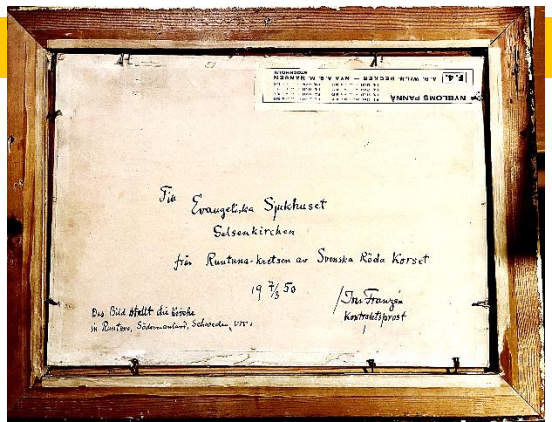 NYBLOMS PANNÅ
F.4.
A.B. WILH. BECKER – NYA A.B. M. HANSEN
STOCKHOLM
Till Evangeliska Sjukhuset
Gelsenkirchen
från Runtuna-kretsen av Svenska Röda Korset
19 7/5 50
Franzén
Kontraktsprost
Das Bild stellt die Kirche
in Runtuna, Södermanland, Schweden, vor.